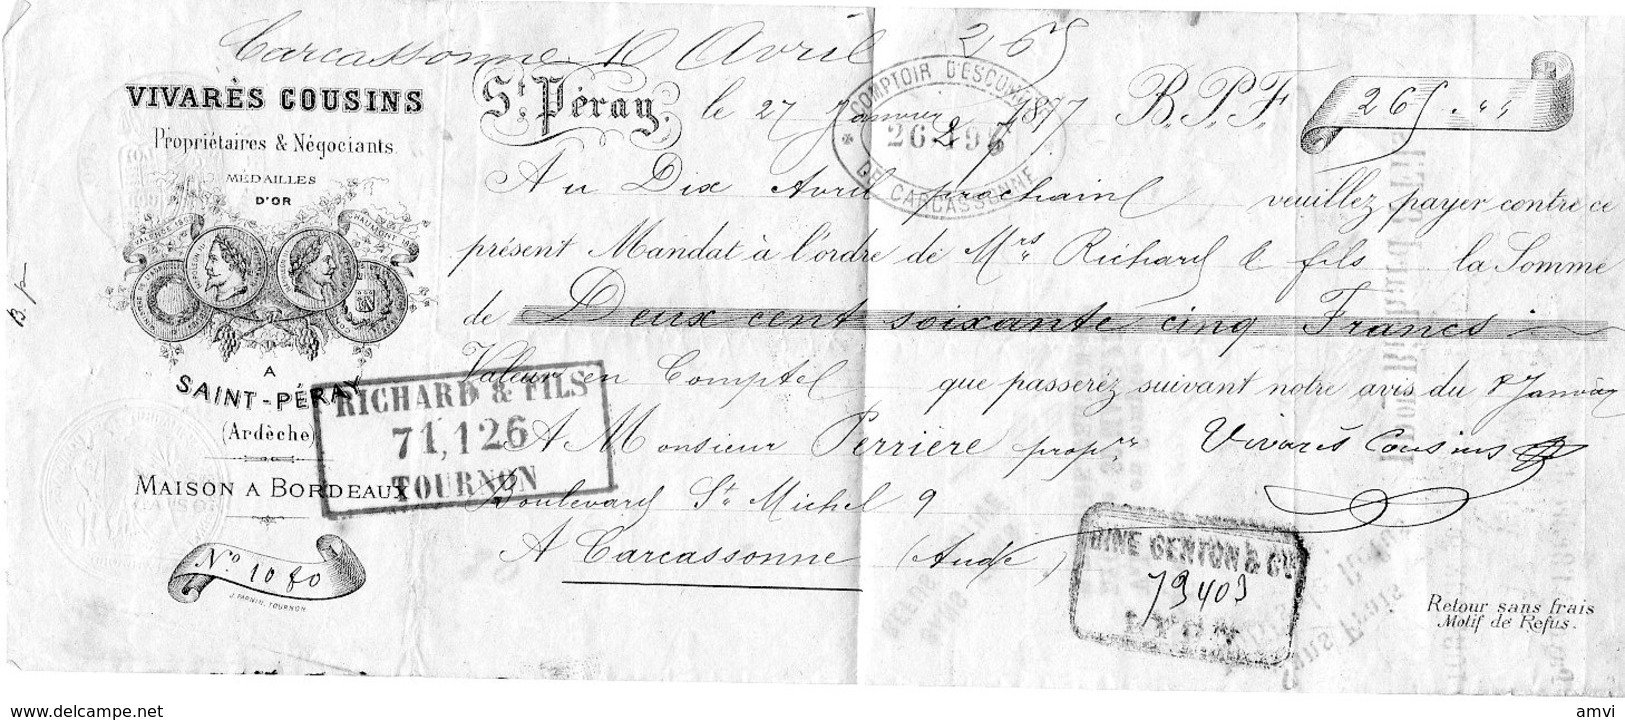 Carcassonne 10 Avril 265
VIVARÈS COUSINS
Propriétaires & Négociants.
MÉDAILLES
D'OR
A
SAINT-PÉRAY
(Ardèche)
MAISON A BORDEAUX
N.º 1080
J. PARNIN, TOURNON
B. p
St Péray, le 27 Janvier 1877 B.P.F. 265 . "
COMPTOIR D'ESCOMPTE
DE CARCASSONNE
Au Dix Avril prochain veuillez payer contre ce
présent Mandat à l'ordre de Mrs Richard & fils la Somme
de Deux cent soixante cinq Francs
Valeur en Comptel que passerez suivant notre avis du 8 Janvier
A Monsieur Perrière propre Vivarès Cousins
Boulevard St Michel 9
A Carcassonne (Aude)
RICHARD & FILS
71,126
TOURNON
BINE GENTON & Cie
79403
LYON
Retour sans frais
Motif de Refus.
www.delcampe.net
amvi